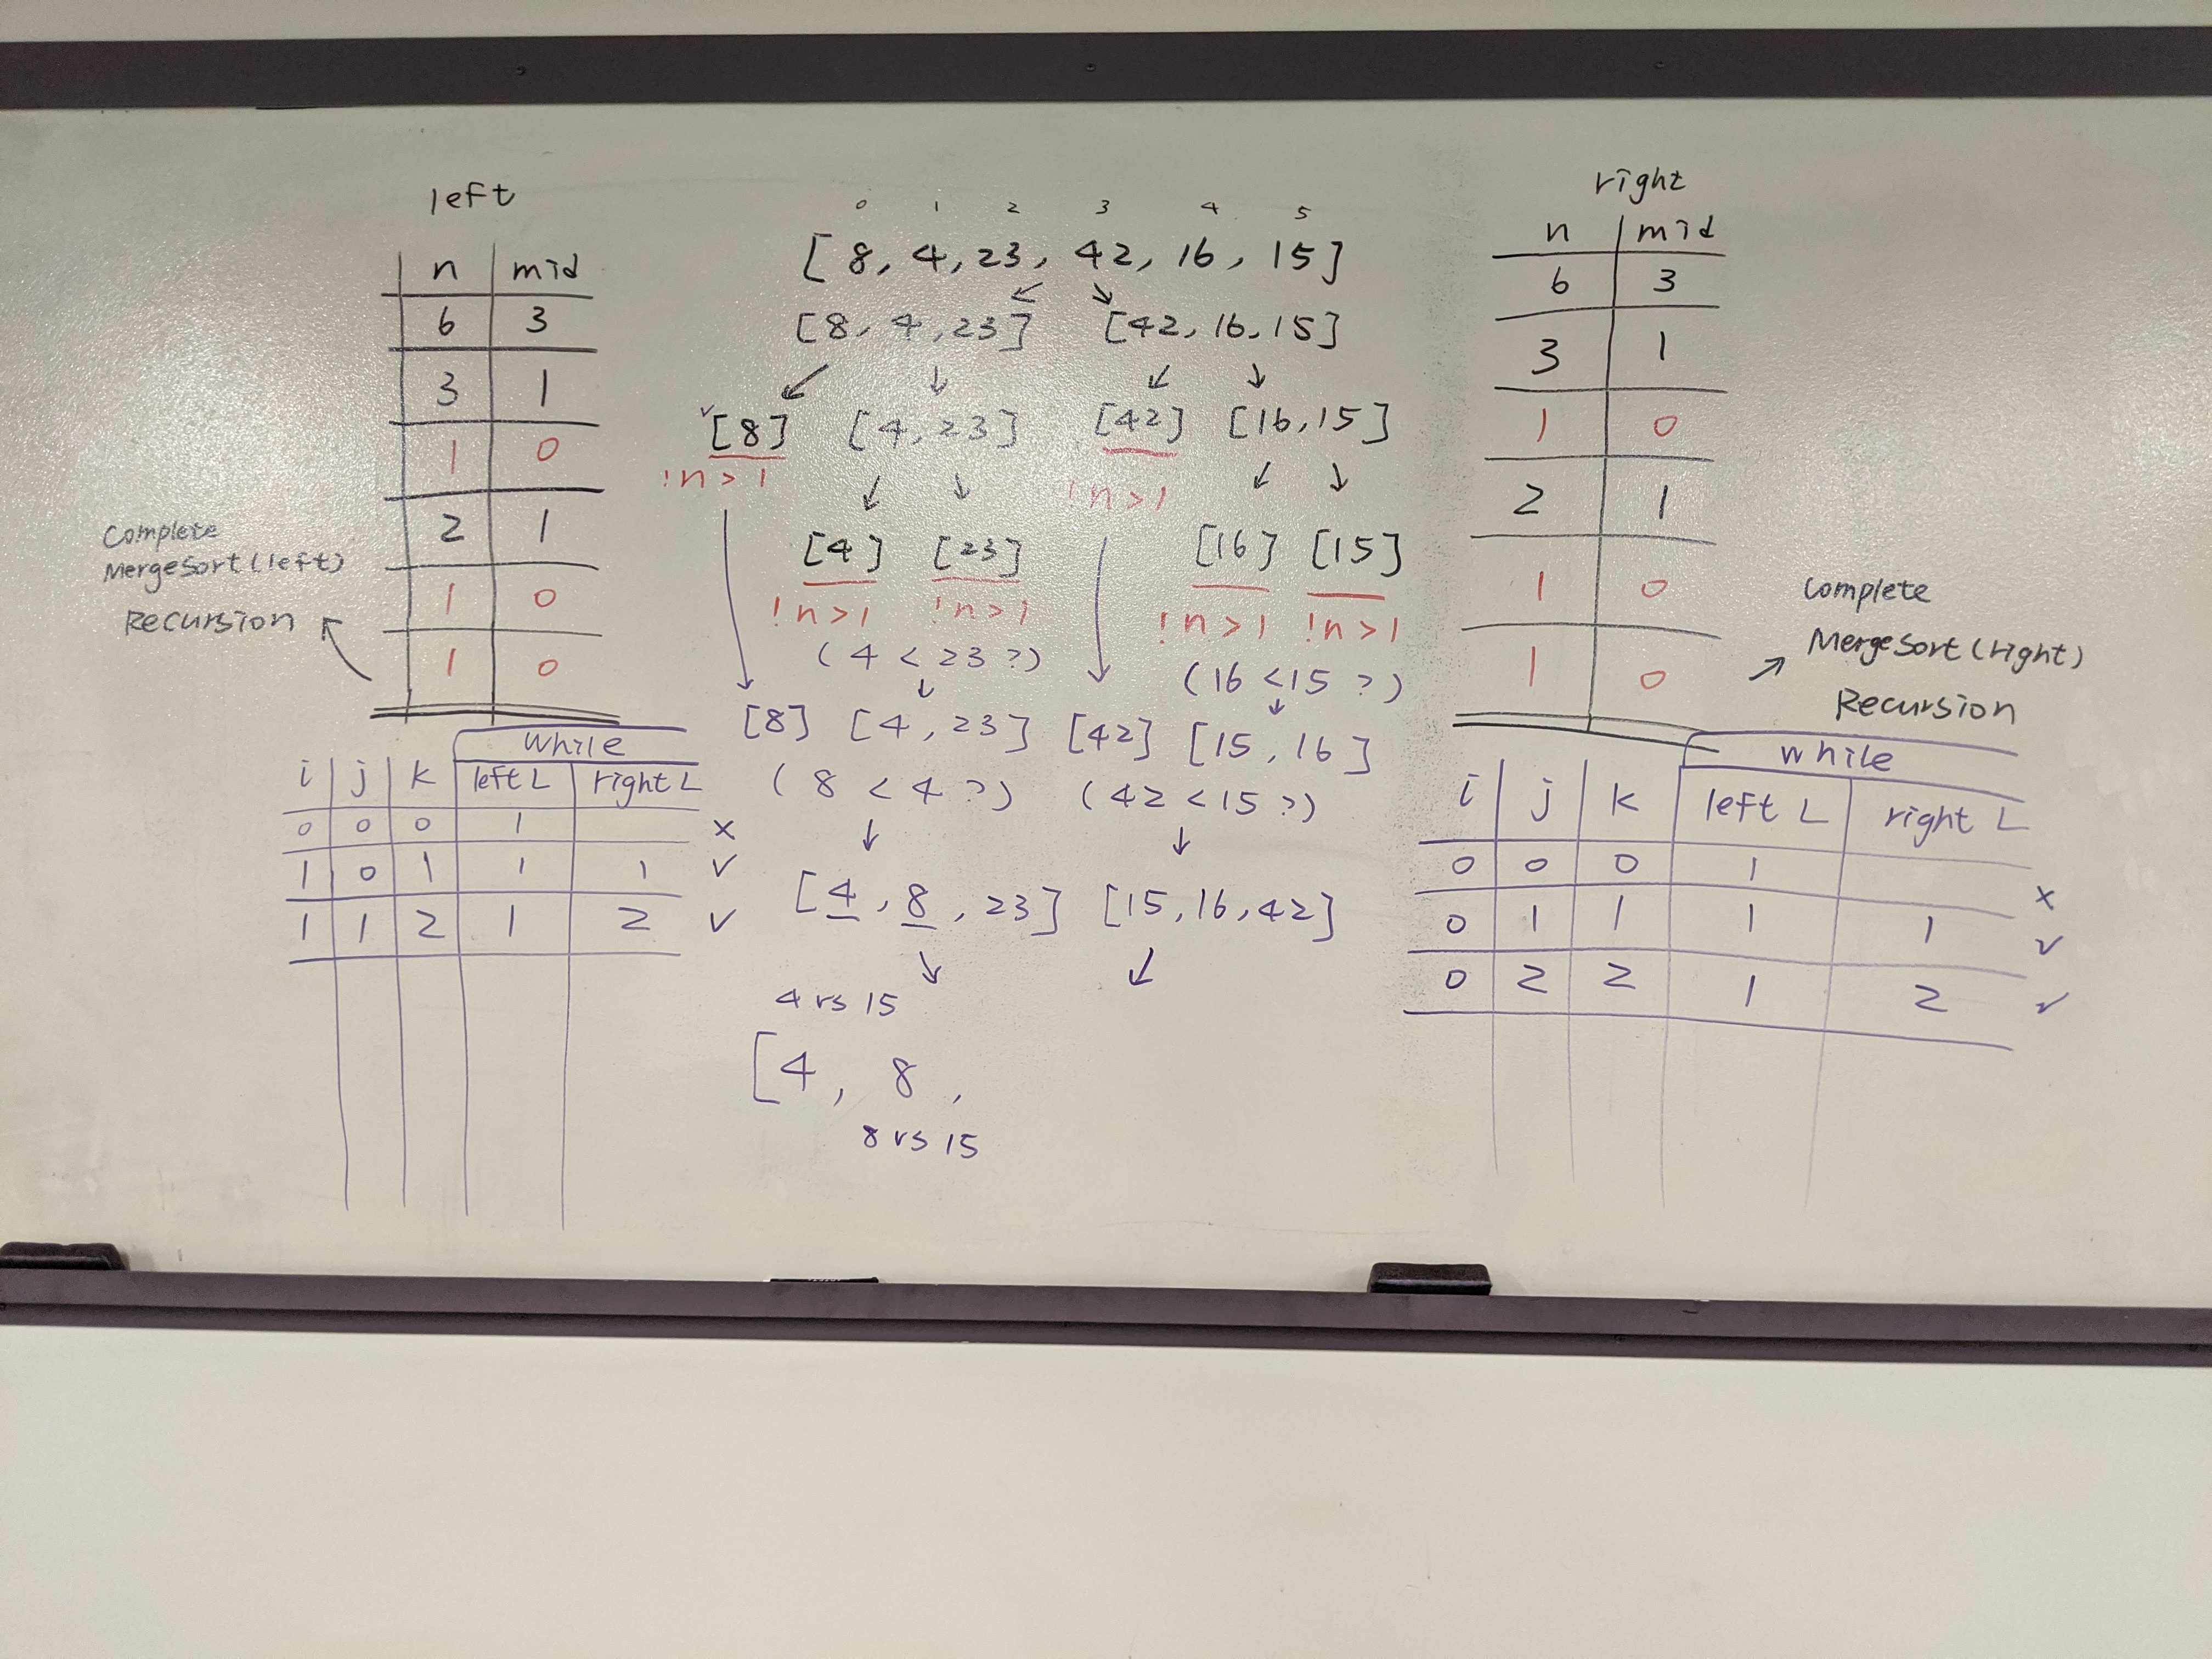 left
n mid
6 3
3 1
1 0
2 1
1 0
1 0
Complete
MergeSort(left)
Recursion
while
i j k left L right L
0 0 0 1 x
1 0 1 1 1 ✓
1 1 2 1 2 ✓
0 1 2 3 4 5
[8, 4, 23, 42, 16, 15]
[8, 4, 23] [42, 16, 15]
✓[8] [4, 23] [42] [16, 15]
!n>1 !n>1
[4] [23] [16] [15]
!n>1 !n>1 !n>1 !n>1
(4 < 23 ?) (16 < 15 ?)
[8] [4, 23] [42] [15, 16]
(8 < 4 ?) (42 < 15 ?)
[4, 8, 23] [15, 16, 42]
4 vs 15
[4, 8,
8 vs 15
right
n mid
6 3
3 1
1 0
2 1
1 0
1 0
Complete
MergeSort(right)
Recursion
while
i j k left L right L
0 0 0 1 x
0 1 1 1 1 ✓
0 2 2 1 2 ✓